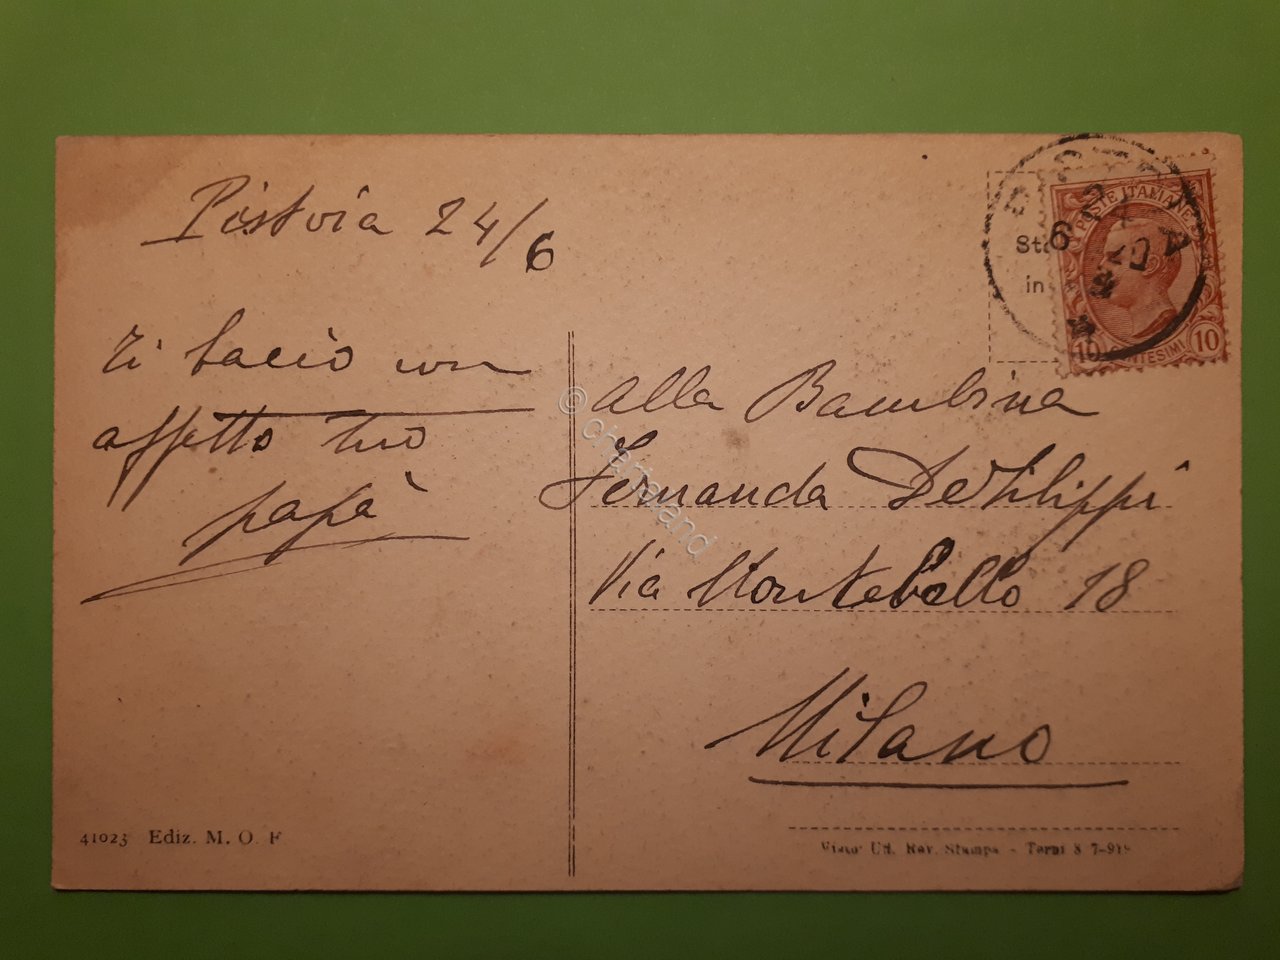 Pistoia 24/6
Ti bacio con
affetto tuo
papà
alla Bambina
Fernanda De Filippi
Via Montebello 18
Milano
POSTE ITALIANE
10 CENTESIMI 10
in
41023 Ediz. M. O. F
Visto Uff. Rev. Stampa - Terni 8 7-919
© chartaland